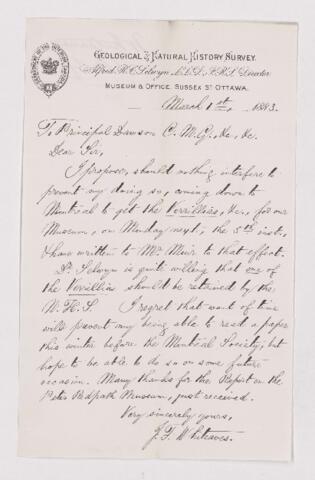 GEOLOGICAL & NATURAL HISTORY SURVEY.
Alfred R. C. Selwyn, L.L.D., F.R.S., Director
MUSEUM & OFFICE, SUSSEX ST OTTAWA.
March 1st, 1883.
To Principal Dawson C.M.G., &c, &c.
Dear Sir,
I propose, should nothing interfere to
prevent my doing so, coming down to
Montreal to get the Verrillias, &c., for our
Museum, on Monday next, the 5th inst.,
& have written to Mr Muir to that effect.
Dr. Selwyn is quite willing that one of
the Verrillia should be retained by the
N. H. S. I regret that want of time
will prevent my being able to read a paper
this winter before the Montreal Society, but
hope to be able to do so on some future
occasion. Many thanks for the Report on the
Peter Redpath Museum, just received.
Very sincerely yours,
J. F. Whiteaves.